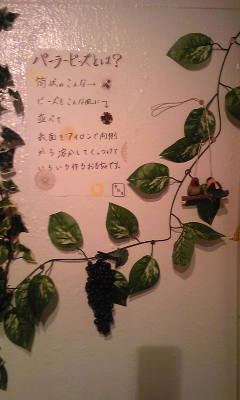 パーラービーズとは?
筒状のこんな→
ビーズをこんな風に→
並べて
表面をアイロンで両側
から溶かしてくっつけて
いろいろ作るおもちゃです。